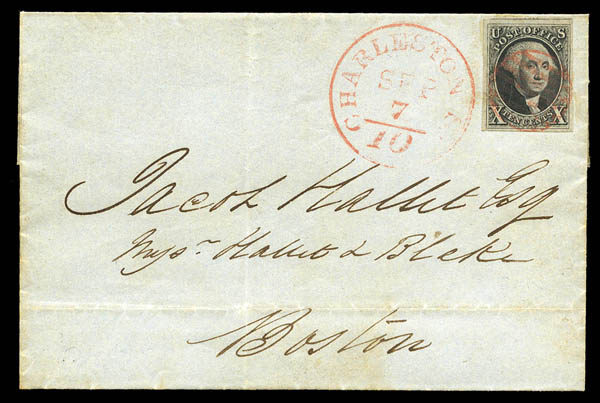 CHARLESTON
SEP
7
10
U S
POST OFFICE
X TEN CENTS X
Jacob Hallet Esq
Hallet & Blake
Boston